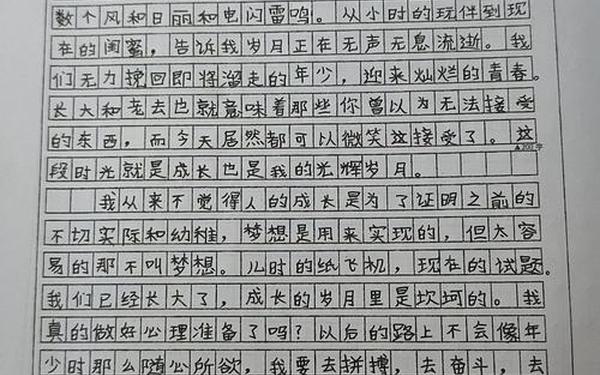 数个风和日丽和电闪雷鸣。从小时的玩伴到现
在的闺蜜，告诉我岁月正在无声无息流逝。我
们无力挽回即将溜走的年少，迎来灿烂的青春。
长大和老去也就意味着那些你曾以为无法接受
的东西，而今天居然都可以微笑这接受了。这
▲200字
段时光就是成长也是我的光辉岁月。
我从来不觉得人的成长是为了证明之前的
不切实际和幼稚，梦想是用来实现的，但太容
易的那不叫梦想。儿时的纸飞机，现在的试题。
我们已经长大了，成长的岁月里是坎坷的。我
真的做好心理准备了吗？以后的路上不会像年
少时那么随心所欲，我要去拼搏，去奋斗，去